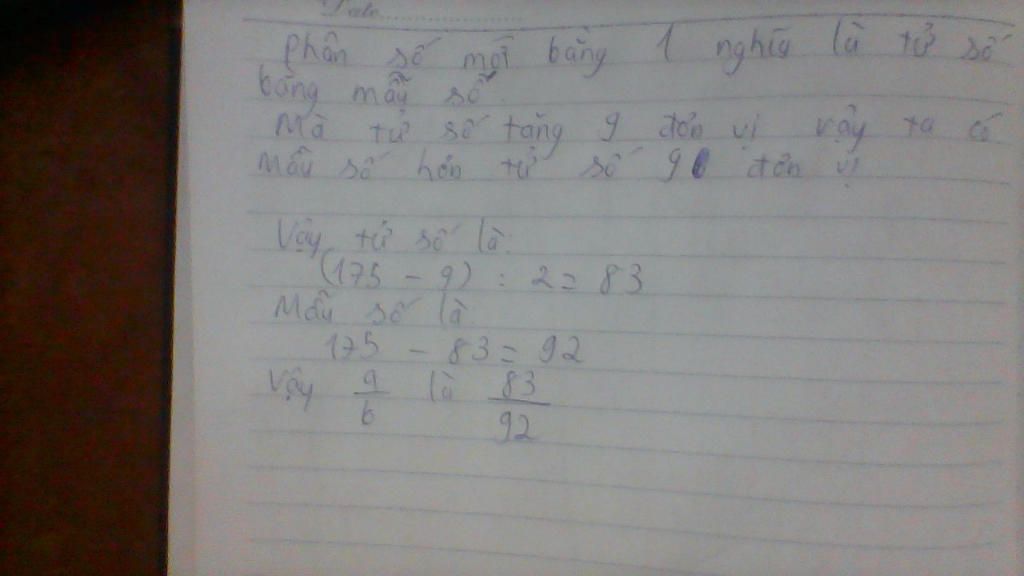 Date..............
Phân số mới bằng 1 nghĩa là tử số
bằng mẫu số.
Mà tử số tăng 9 đơn vị vậy ta có
Mẫu số hơn tử số 9 đơn vị
Vậy tử số là:
(175 - 9) : 2 = 83
Mẫu số là
175 - 83 = 92
Vậy a/b là 83/92